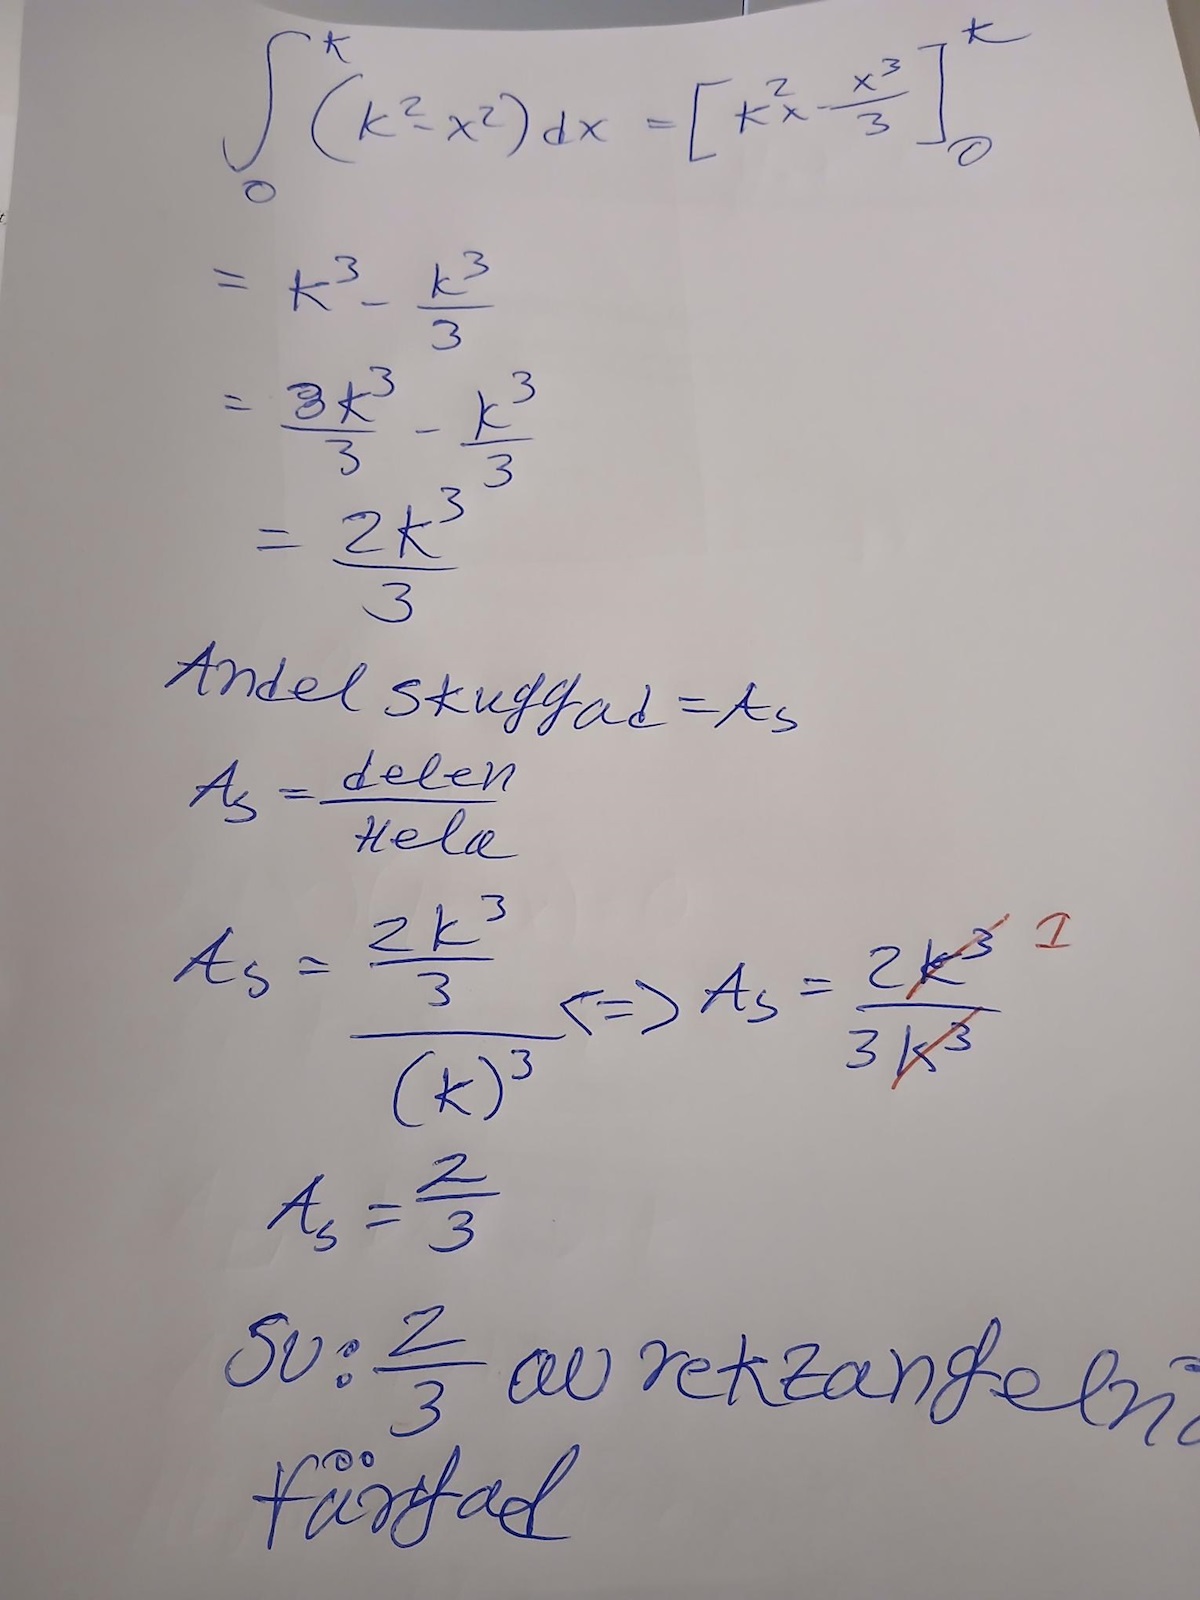 ∫₀ᵏ (k²-x²)dx = [k²x - x³/3]₀ᵏ
= k³ - k³/3
= 3k³/3 - k³/3
= 2k³/3
Andel skuggad = As
As = delen/Hela
As = (2k³/3)/(k)³ <=> As = 2k³/3k³ 1
As = 2/3
Sv: 2/3 av rektangeln är
färgad